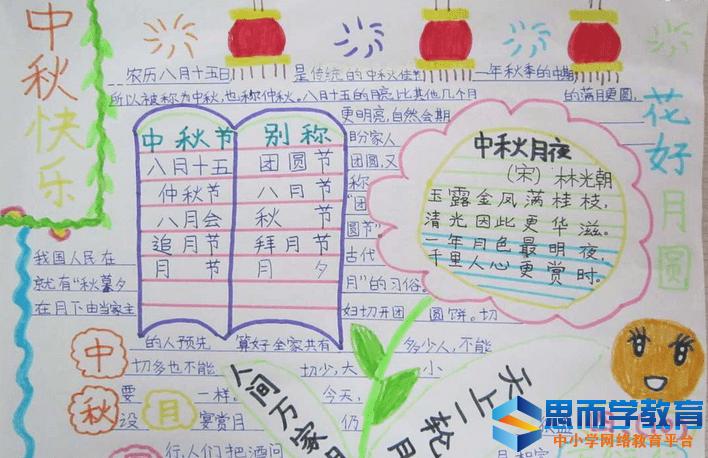 中秋快乐
花好月圆
农历八月十五日 是传统的中秋佳节 一年秋季的中期
所以被称为中秋,也称仲秋。八月十五的月亮比其他几个月 的满月更圆,
更明亮,自然会期
盼家人
团圆,又
称
"团
圆节"
古代
中秋节 别称
八月十五 团圆节
仲秋节 八月节
八月会 秋节
追月节 拜月节
月节 月夕
中秋月夜
(宋)林光朝
玉露金凤满桂枝,
清光因此更华滋。
一年月色最明夜,
千里人心更赏时。
我国人民在
就有"秋暮夕 月"的习俗。
在月下由当家主 妇切开团 圆饼。切
的人预先 算好全家共有 多少人,不能
切多也不能 切少,大 小
要 一样。 今天,
设 宴赏月 仍
行,人们把酒问
中
秋
月
人间万家
天上一轮月
思而学教育
中小学网络教育平台